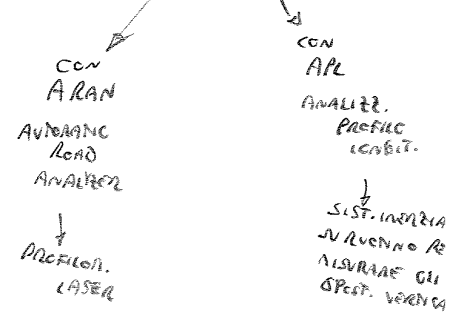 CON
ARAN
AUTOMATIC
ROAD
ANALYZER
PROFILOM.
LASER
CON
APL
ANALIZZ.
PROFILO
LONGIT.
SIST. INERZIA
SU
MISURARE GLI
SPOST. VERTICA